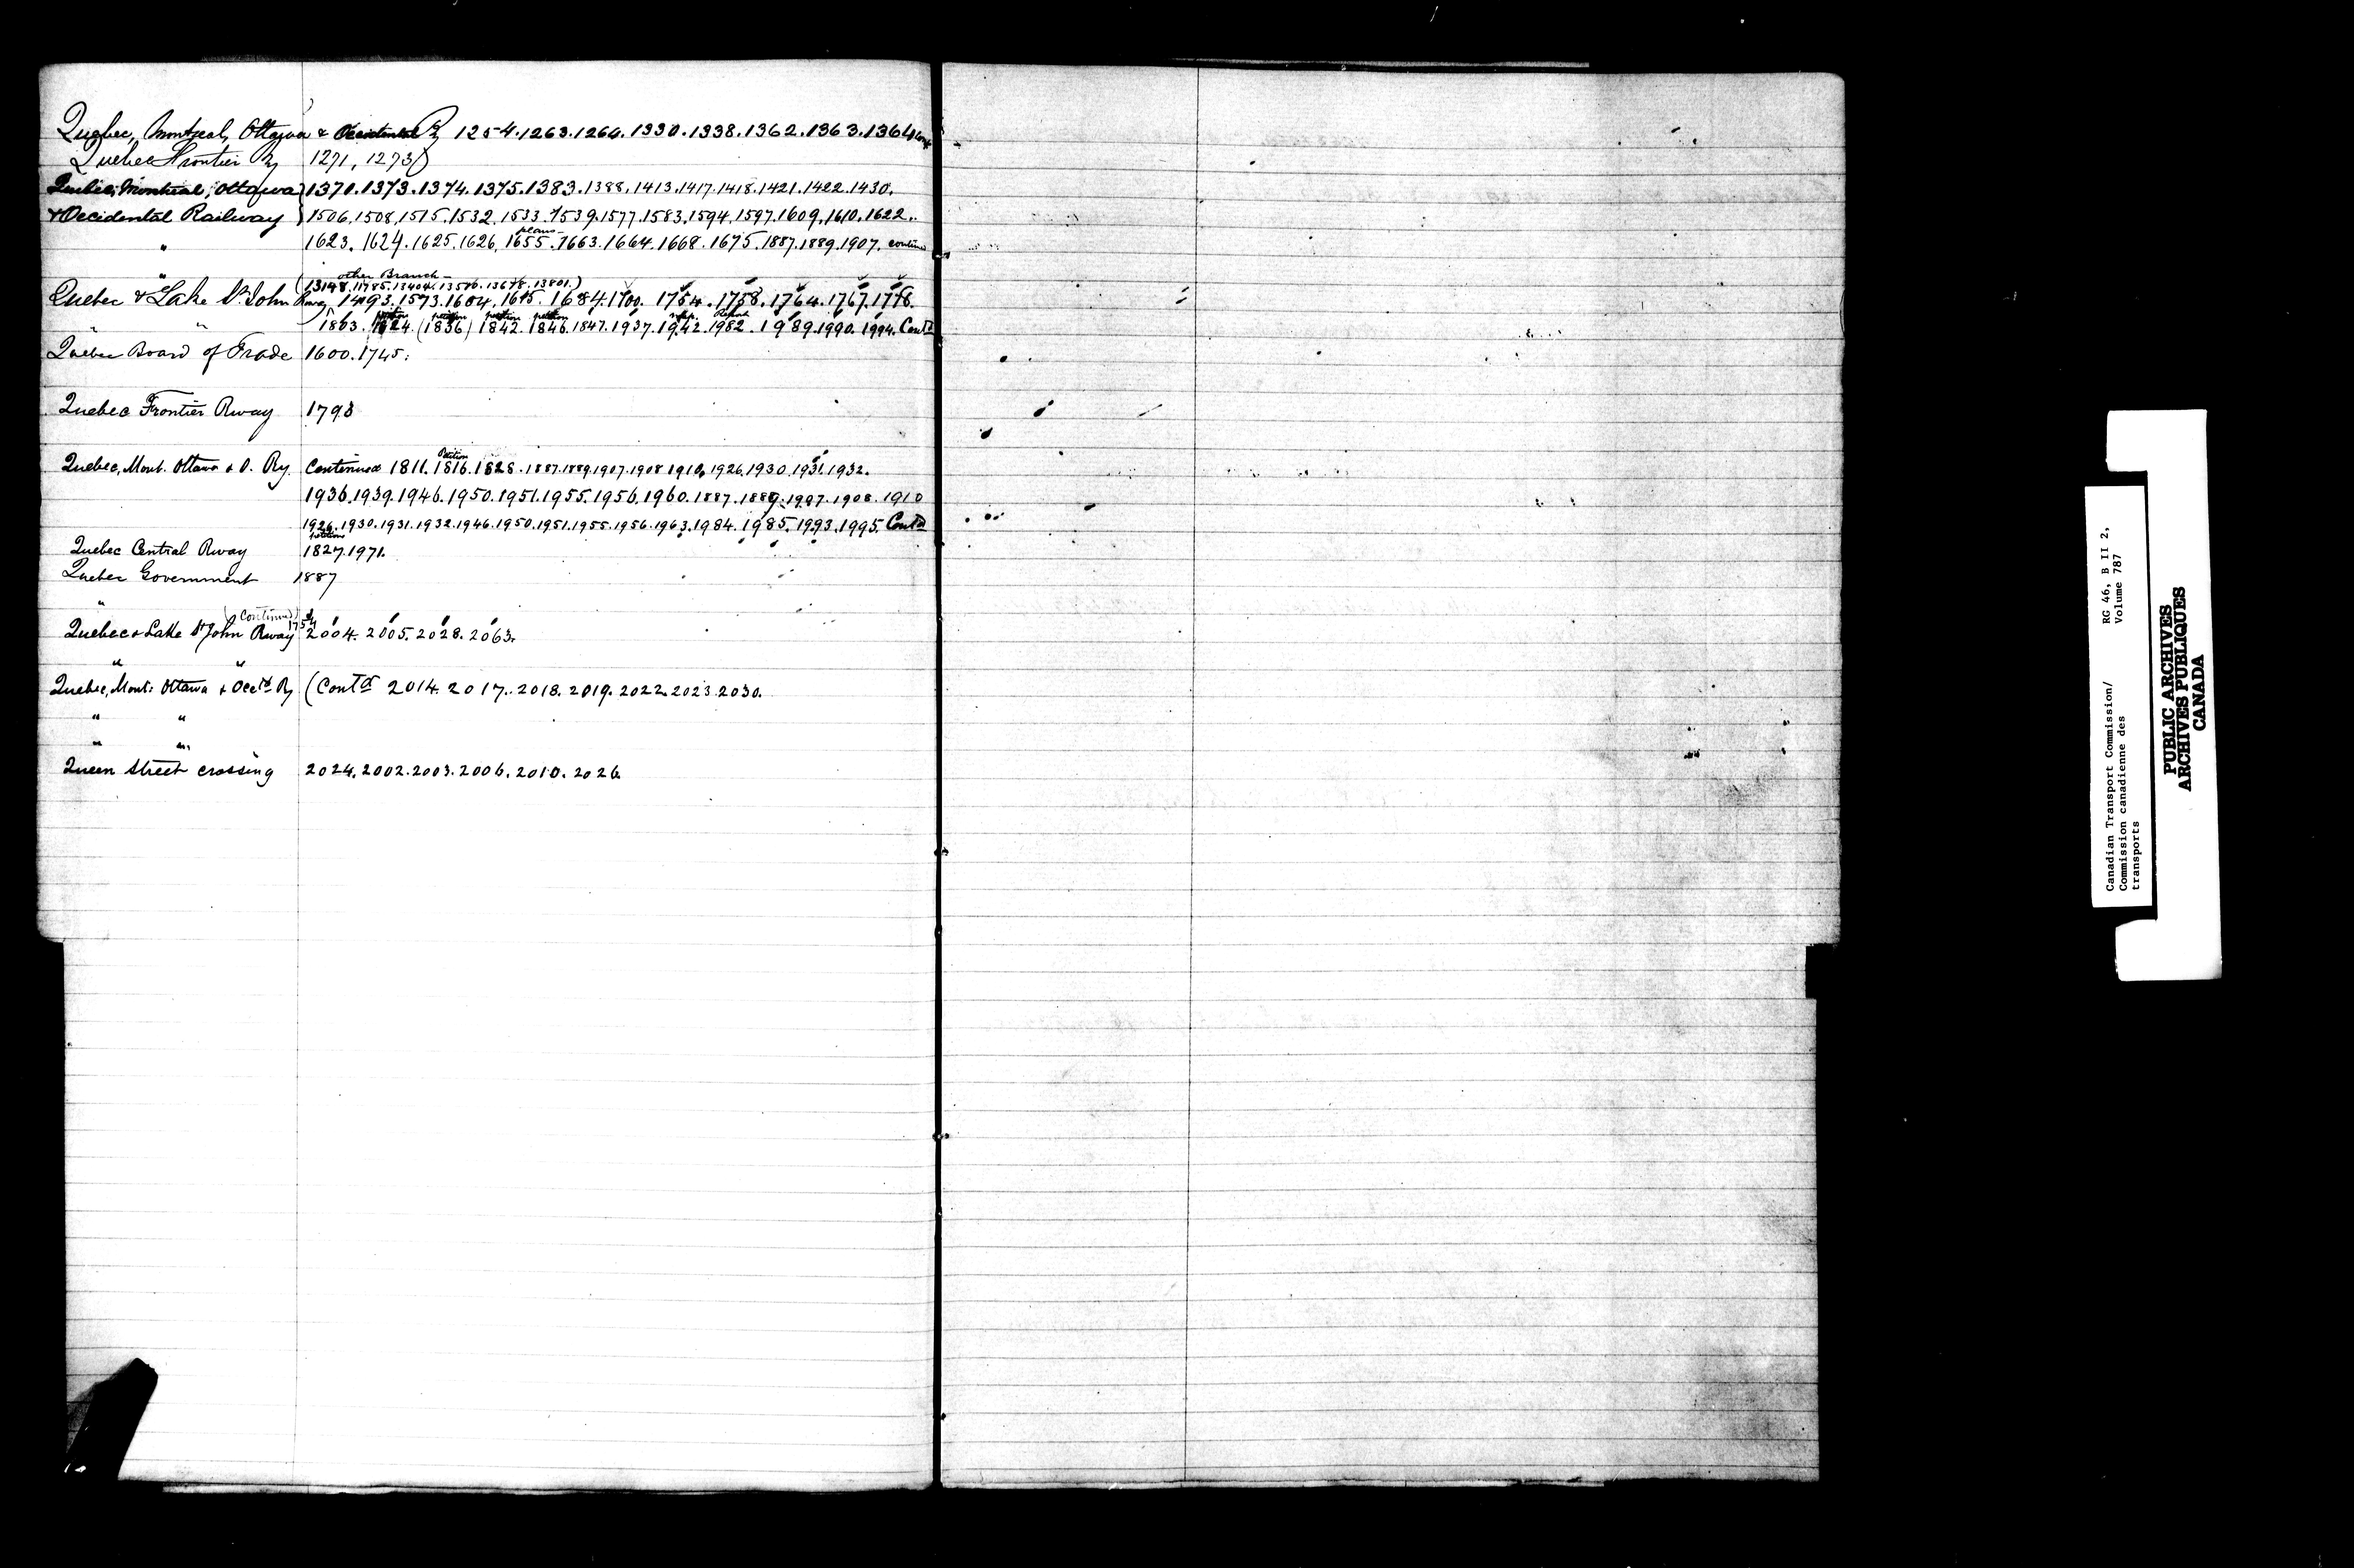 Quebec, Montreal, Ottawa & Occidental Ry 1254.1263.1264.1330.1338.1362.1363.1364
Quebec Frontier Ry 1271, 1273)
Quebec, Montreal, Ottawa) 1370.1373.1374.1375.1383.1388.1413.1417.1418.1421.1422.1430.
& Occidental Railway } 1506.1508.1515.1532.1533.1539.1577.1583.1594.1597.1609.1610.1622..
plans
" 1623.1624.1625.1626.1655.1663.1664.1668.1675.1887.1889.1907. continued
other Branch
" (13148.11785.13404.13516.13678.13801.)
Quebec & Lake St. John Rway 1493.1573.1604.1615.1684.1700. 1754.1758.1764.1767.1778.
petition petition petition petition
" " 1863.1824.(1836) 1842.1846.1847.1937.1942.1982.1989.1990.1994. Cont'd
Quebec Board of Trade 1600.1745.
Quebec Frontier Rway 1793
Petition
Quebec, Mont. Ottawa & O. Ry. Continued 1811.1816.1828.1887.1889.1907.1908.1910.1926.1930.1931.1932.
1936.1939.1946.1950.1951.1955.1956.1960.1887.1889.1907.1908.1910
1926.1930.1931.1932.1946.1950.1951.1955.1956.1963.1984.1985.1993.1995. Cont'd
petitions
Quebec Central Rway 1827.1971.
Quebec Government 1887
" (Continued)
Quebec & Lake St John Rway 1754 2004.2005.2028.2063.
" "
Quebec, Mont: Ottawa & Occ'd. Ry (Cont'd 2014.2017.2018.2019.2022.2023.2030.
" "
" "
Queen Street crossing 2024.2002.2003.2006.2010.2026.
Canadian Transport Commission/ RG 46, B II 2,
Commission canadienne des Volume 787
transports
PUBLIC ARCHIVES
ARCHIVES PUBLIQUES
CANADA